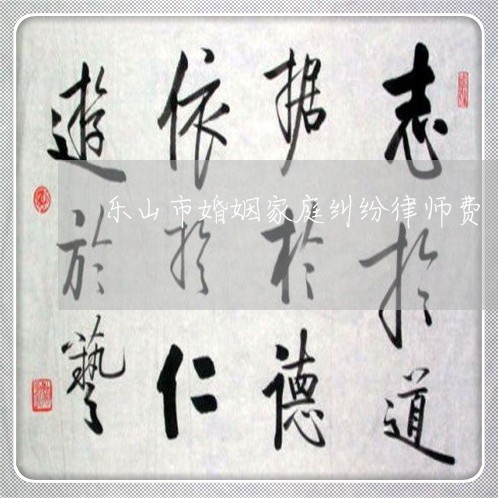 志於道
据於德
依於仁
遊於藝
乐山市婚姻家庭纠纷律师费